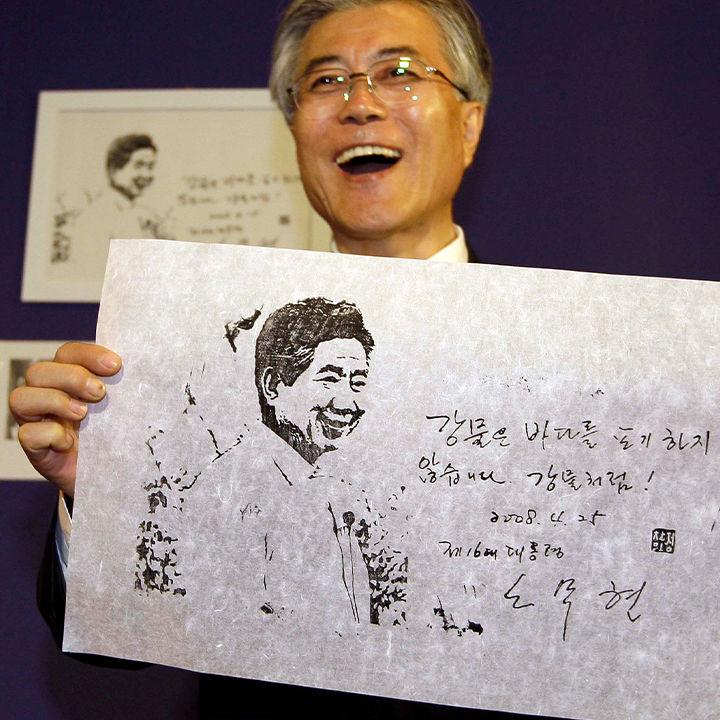 강물은 바다를 포기하지
않습니다. 강물처럼!
2008. 4. 25
제16대 대통령
노무현